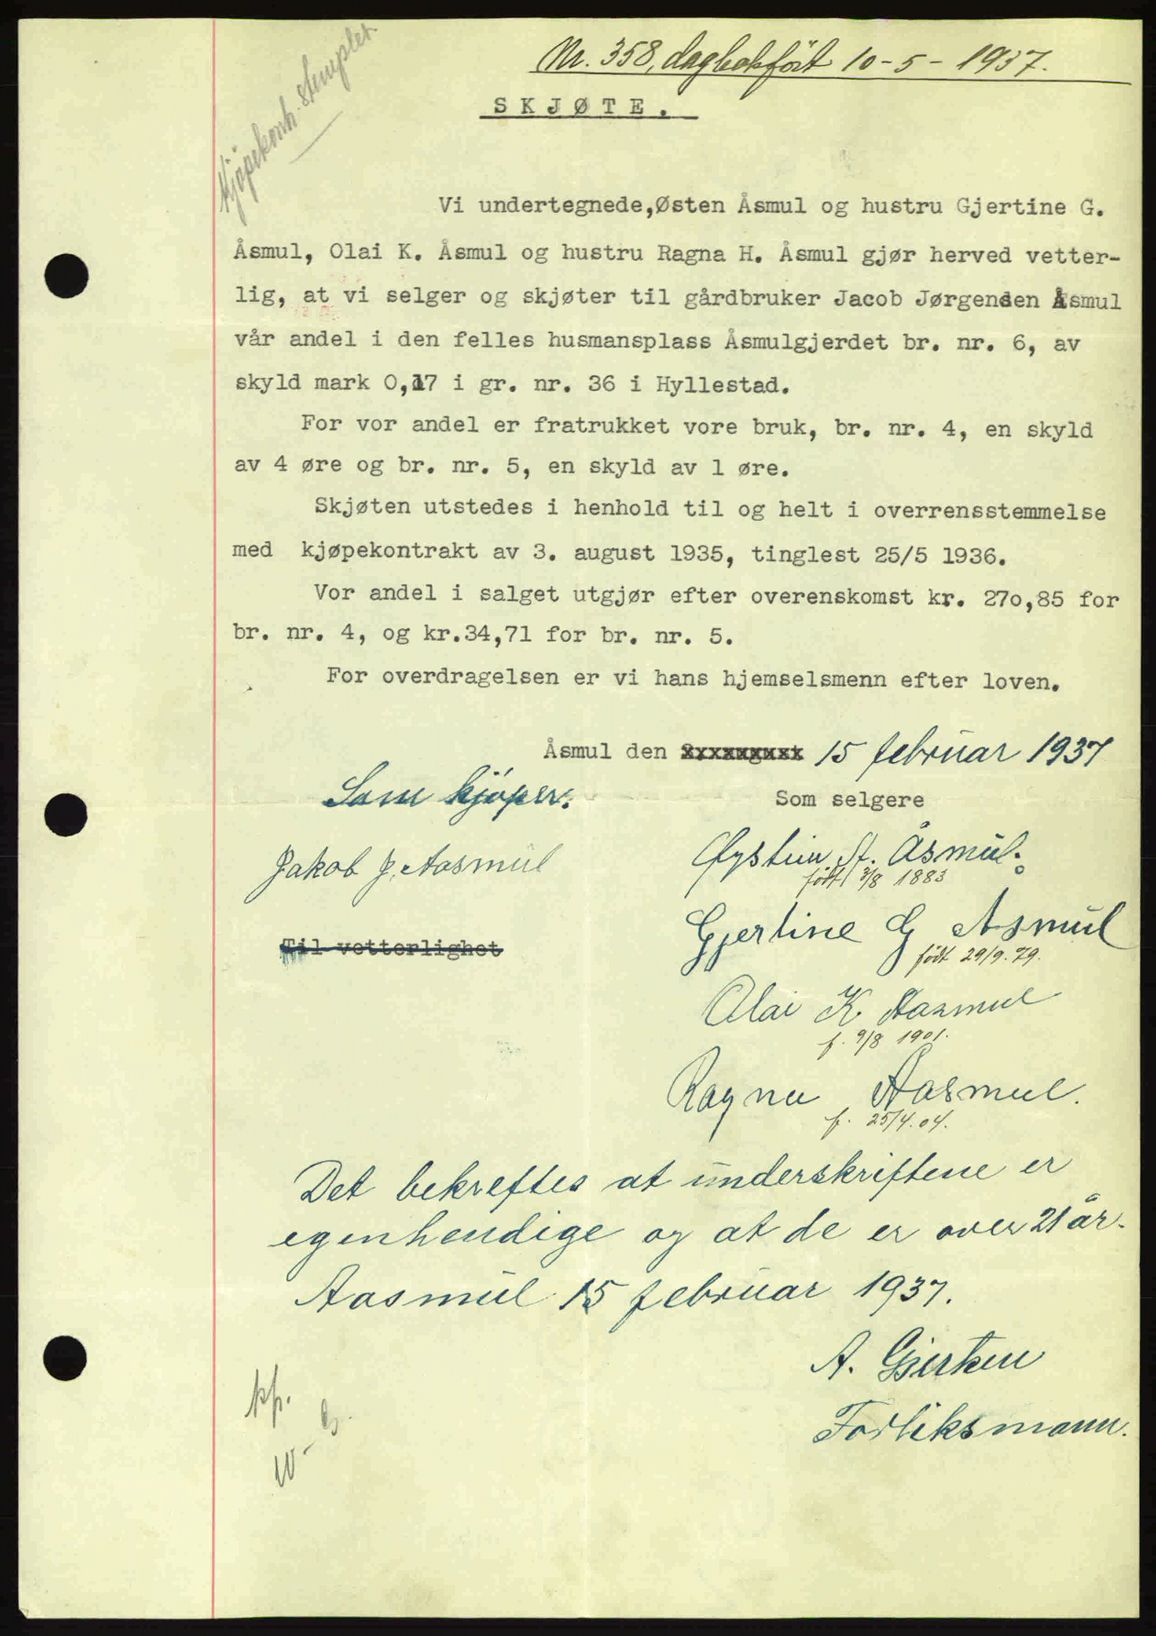 Nr. 358, dagbokført 10-5-1937.
Kjöpekontr. stemplet.
SKJØTE.
Vi undertegnede,Østen Åsmul og hustru Gjertine G.
Åsmul, Olai K. Åsmul og hustru Ragna H. Åsmul gjør herved vetter-
lig, at vi selger og skjøter til gårdbruker Jacob Jørgensen Åsmul
vår andel i den felles husmansplass Åsmulgjerdet br. nr. 6, av
skyld mark 0,17 i gr. nr. 36 i Hyllestad.
For vor andel er fratrukket vore bruk, br. nr. 4, en skyld
av 4 øre og br. nr. 5, en skyld av 1 øre.
Skjøten utstedes i henhold til og helt i overrensstemmelse
med kjøpekontrakt av 3. august 1935, tinglest 25/5 1936.
Vor andel i salget utgjør efter overenskomst kr. 270,85 for
br. nr. 4, og kr.34,71 for br. nr. 5.
For overdragelsen er vi hans hjemselsmenn efter loven.
Åsmul den 15 februar 1937
Som kjöper.
Som selgere
Jakob J. Aasmul
Øystein A. Åsmul.
født 3/8 1883
Til vetterlighet
Gjertine G Asmul
født 29/9.79.
Olai K Aasmul
f. 9/8 1901.
Ragna Aasmul.
f. 25/4.04.
Det bekreftes at underskriftene er
egenhendige og at de er over 21 år.
Aasmul 15 februar 1937.
A. Gjertsen
Forliksmann.
kp.